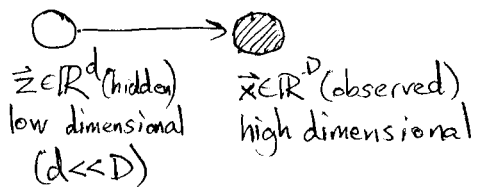 z⃗∈ℝᵈ(hidden)
low dimensional
(d<<D)
x⃗∈ℝᴰ(observed)
high dimensional